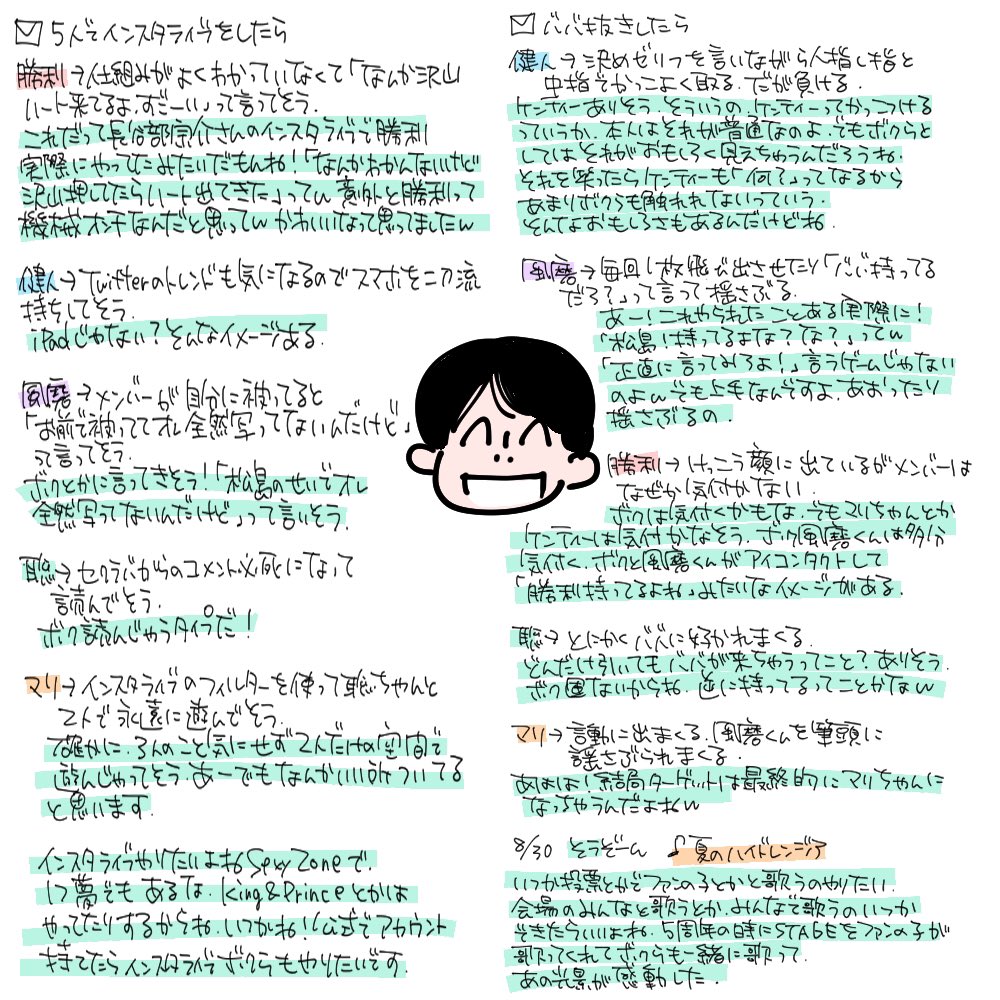 5人でインスタライブをしたら
勝利→仕組みがよくわかっていなくて「なんか沢山
ハート来てるよ、すごーい」って言ってそう.
これだって長谷部宗介さんのインスタライブで勝利
実際にやってたみたいだもんね!「なんかわかんないけど
沢山押してたらハート出てきた」ってw 意外と勝利って
機械オンチなんだと思ってw かわいいなって思ってましたw
健人→Twitterのトレンドも気になるのでスマホを二刀流
持ちしてそう.
iPadじゃない?そんなイメージある.
風磨→メンバーが自分に被ってると
「お前で被っててオレ全然写ってないんだけど」
って言ってそう.
ボクとかに言ってきそう!「松島のせいでオレ
全然写ってないんだけど」って言いそう.
聡→セクラバからのコメント必死になって
読んでそう.
ボク読んじゃうタイプだ!
マリ→インスタライブのフィルターを使って聡ちゃんと
2人で永遠に遊んでそう.
確かに.3人のこと気にせず2人だけの空間で
遊んじゃってそう.あーでもなんかいい所ついてる
と思います.
インスタライブやりたいよねSexy Zoneで.
1つ夢でもあるな.King&Princeとかは
やってたりするからね.いつかね!公式でアカウント
持てたらインスタライブボクらもやりたいです.
ババ抜きしたら
健人→決めゼリフを言いながら人指し指と
中指でかっこよく取る.だが負ける.
ケンティーありそう.そういうの.ケンティーってかっこつける
っていうか、本人はそれが普通なのよ.でもボクらと
してはそれがおもしろく見えちゃうんだろうね.
それを笑ったらケンティーも「何?」ってなるから
あまりボクらも触れれないっていう.
そんなおもしろさもあるんだけどね.
風磨→毎回1枚飛び出させたり「ババ持ってる
だろ?」って言って揺さぶる.
あー!これやられたことある実際に!
「松島は持ってるよな?な?」ってw
「正直に言ってみろよ!」言うゲームじゃない
のよw でも上手なんですよ.あおったり
揺さぶるの.
勝利→けっこう顔に出ているがメンバーは
なぜか気付かない.
ボクは気付くかもな.でもマリちゃんとか
ケンティーは気付かなそう.ボク風磨くんは多分
気付く.ボクと風磨くんがアイコンタクトして
「勝利持ってるよね」みたいなイメージがある.
聡→とにかくババに好かれまくる.
どんだけ引いてもババが来ちゃうってこと?ありそう.
ボク運ないからね.逆に持ってるってことかなw
マリ→言動に出まくる.風磨くんを筆頭に
揺さぶられまくる.
あはは!結局ターゲットは最終的にマリちゃんに
なっちゃうんだよねw
8/30 そうぞーん ♪夏のハイドレンジア
いつか投票とかでファンの子とかと歌うのやりたい.
会場のみんなと歌うとか.みんなで歌うのいつか
できたらいいよね.5周年の時にSTAGEをファンの子が
歌ってくれてボクらも一緒に歌って.
あの光景が感動した.